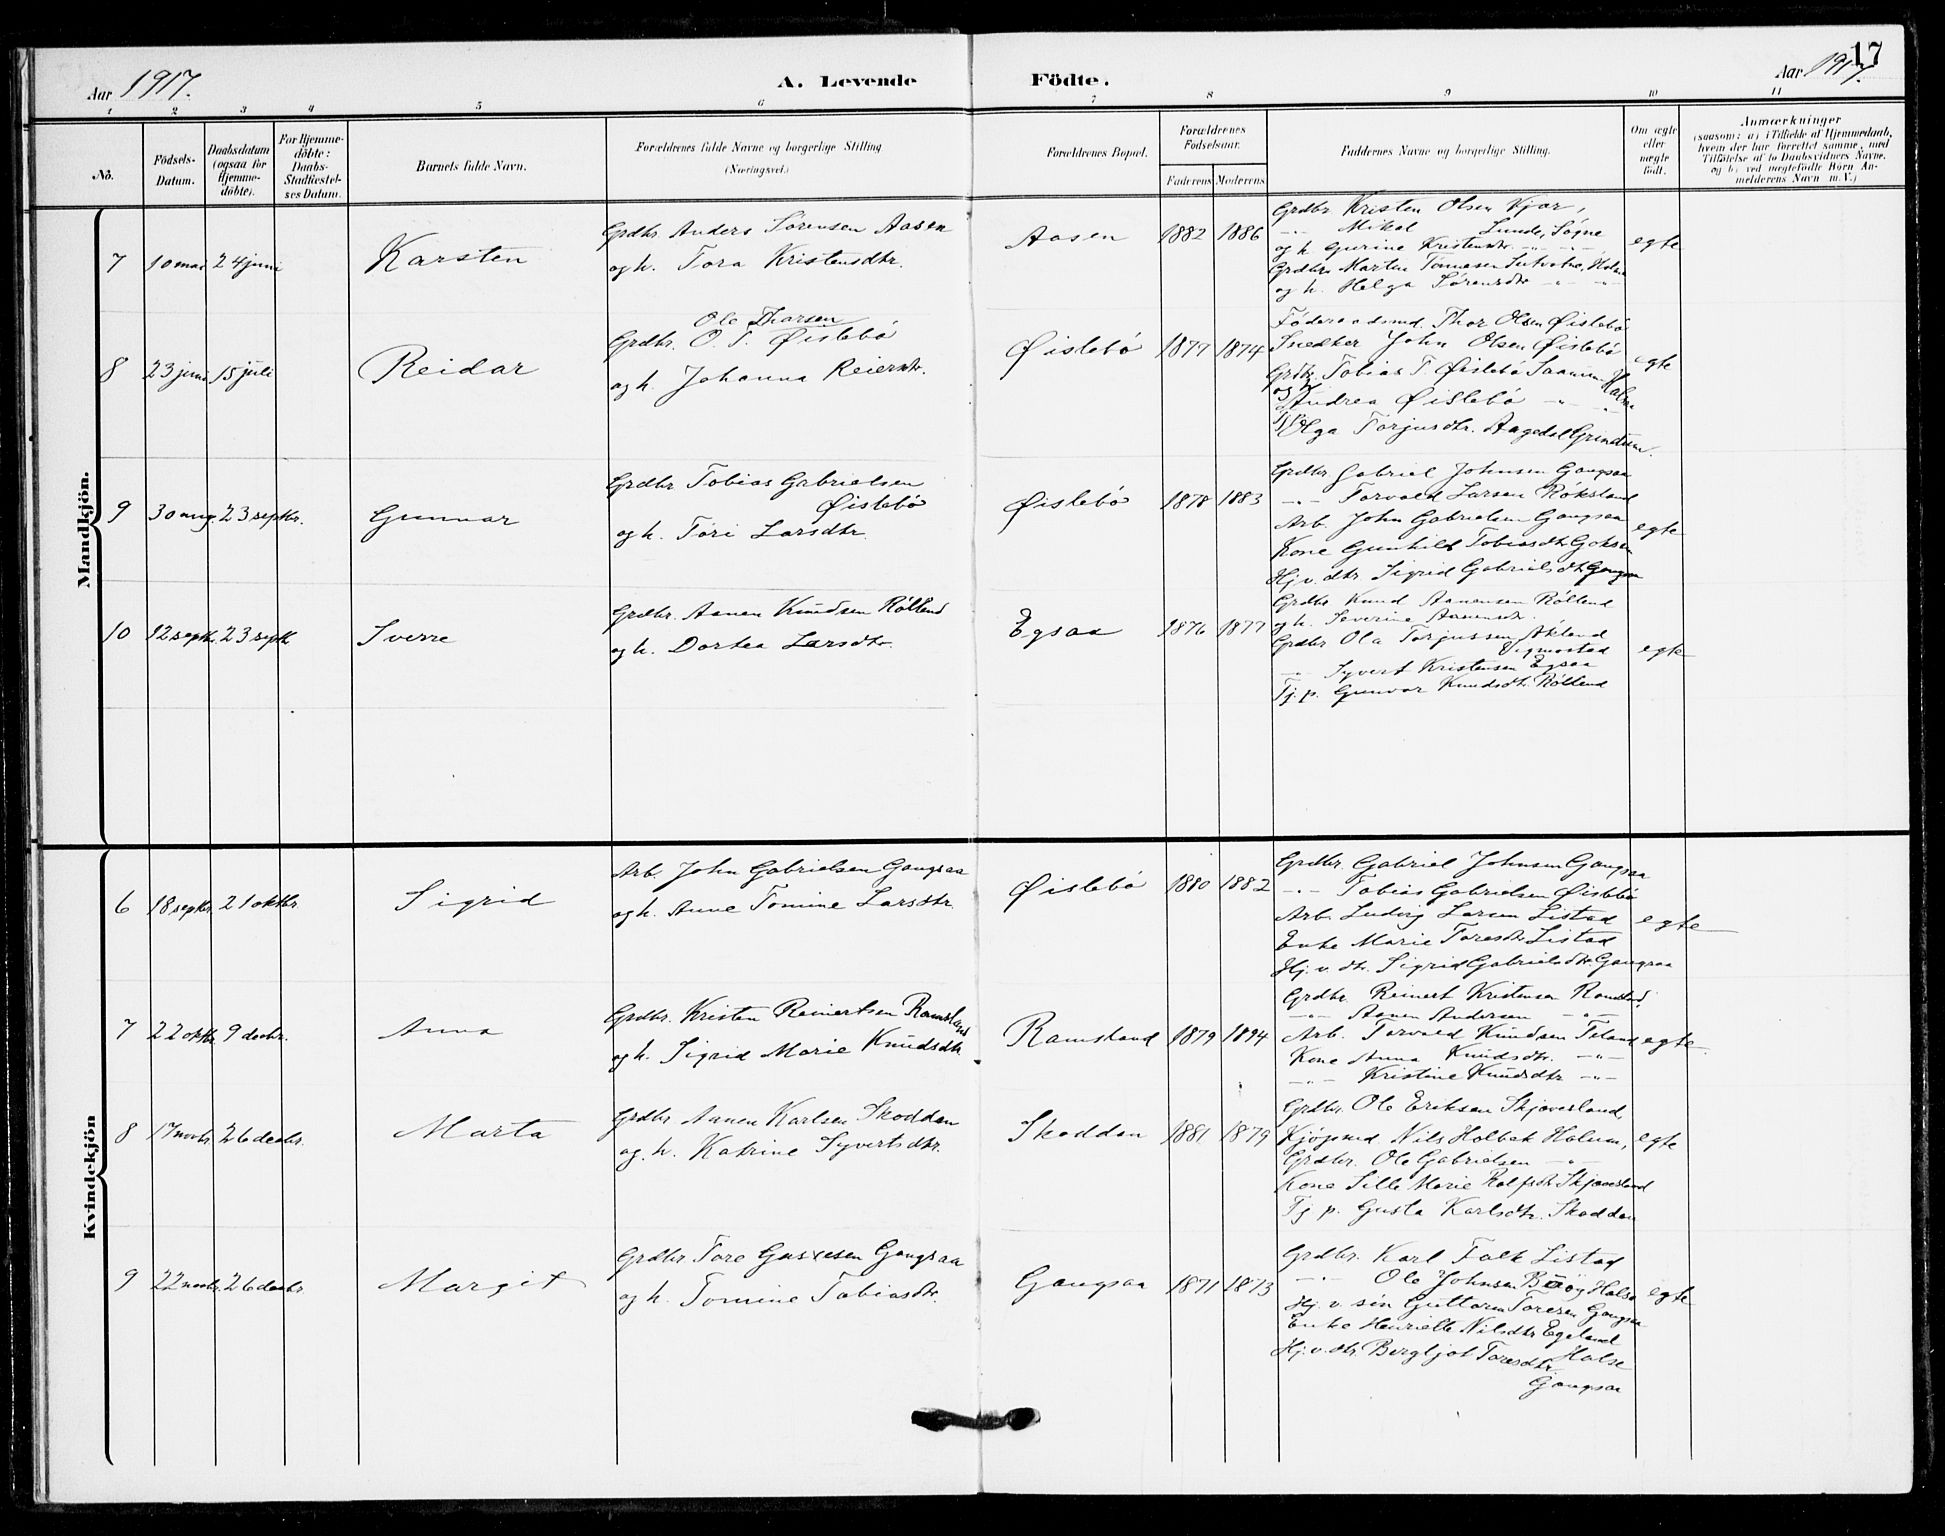 17
Aar 1917.
A. Levende Födte.
Aar 1917.
1 2 3 4 5 6 7 8 9 10 11
No.
Födsels-Datum.
Daabsdatum (ogsaa for Hjemme-döbte).
For Hjemme-döbte: Daabs-Stadfæstel-ses Datum.
Barnets fulde Navn.
Forældrenes fulde Navne og borgerlige Stilling (Næringsvei.)
Forældrenes Bopæl.
Forældrenes Födselsaar.
Faderens Moderens
Faddernes Navne og borgerlige Stilling.
Om ægte eller uægte födt.
Anmærkninger
(saasom: a) i Tilfælde af Hjemmedaab,
hvem der har forrettet samme, med
Tilföielse af to Daabsvidners Navne.
og b) ved uægtefödte Börn An-
melderens Navn m. V.)
Mandkjön.
7 10 mai 24 juni Karsten
Grdbr. Anders Sørensen Aasen
og h. Tora Kristensdtr.
Aasen 1882 1886
Grdbr. Kristen Olsen Kjær,
-"- Mikal Lunde, Søgne
og h. Gurine Kristensdtr. -"- -"-
Grdbr. Martin Tomesen
og h. Helga Sørensdtr -"- -"-
egte
8 23 juni 15 juli Reidar
Ole Thorsen
Grdbr. O. T. Øislebø
og h. Johanna Reiersdtr.
Øislebø 1877 1874
Föderaadsmd. Thor Olsen Øislebø
Snedker John Olsen Øislebø
Grdbr. Tobias T. Øislebø Saanum Halse
og h. Andrea Øislebø -"- -"-
Olga Torjusdtr. Aagedal Grindem.
egte
9 30 aug. 23 septbr. Gunnar
Grdbr Tobias Gabrielsen
Øislebø
og h. Tori Larsdtr.
Øislebø 1878 1883
Grdbr Gabriel Johnsen Gangsaa
-"- Torvald Larsen Røksland
Arb. John Gabrielsen Gangsaa
Kone Gunhild Tobiasdtr
Hj. v. dtr. Sigrid Gabrielsdtr Gangsaa
egte
10 12 septb. 23 septb Sverre
Grdbr. Aanen Knudsen Røllend
og h. Dortea Larsdtr.
Egsaa 1876 1877
Grdbr Knud Aanensen Røllend
og h. Severine Aanensdtr.
Grdbr Ola Torjussen Åkland
Vigmostad
-"- Syvert Kristensen Egsaa
Tj. p. Gunvor Knudsdtr. Røllend
egte
Kvindekjön
6 18 septbr. 21 oktbr. Sigrid
Arb. John Gabrielsen Gangsaa
og h. Anne Tomine Larsdtr
Øislebø 1880 1882
Grdbr. Gabriel Johnsen Gangsaa
-"- Tobias Gabrielsen Øislebø
Arb. Ludvig Larsen Listad
Enke Marie Toresdtr Listad
Hj. v. dtr. Sigrid Gabrielsdtr. Gangsaa
egte
7 22 oktbr. 9 decbr. Anna
Grdbr. Kristen Reinertsen Ramsland
og h. Sigrid Marie Knudsdtr.
Ramsland 1879 1894
Grdbr. Reinert Kristensen Ramsland
-"- Aanen Andersen -"-
Arb. Torvald Knudsen
Kone Anna Knudsdtr. -"-
-"- Kristine Knudsdtr -"-
egte.
8 17 novbr. 26 decbr. Marta
Grdbr. Aanen Karlsen Skoddan
og h. Katrine Syvertsdtr.
Skoddan 1881 1879
Grdbr. Ole Eriksen Skjævesland,
Kjöpmd Nils Holbæk Holum,
Grdbr. Ole Gabrielsen -"-
Kone Sille Marie Rolfsdtr Skjævesland
Tj. p. Gusta Karlsdtr. Skoddan
egte
9 22 novbr. 26 decbr. Margit
Grdbr Tore Gussesen Gangsaa
og h. Tomine Tobiasdtr.
Gangsaa 1871 1873
Grdbr. Karl Falk Listad
-"- Ole Johnsen Halse
Hj. v. søn Guttorm Toresen Gangsaa
Enke Henriette Nilsdtr Egeland
Halse
Hj. v. dtr. Bergljot Toresdtr
Gangsaa
egte